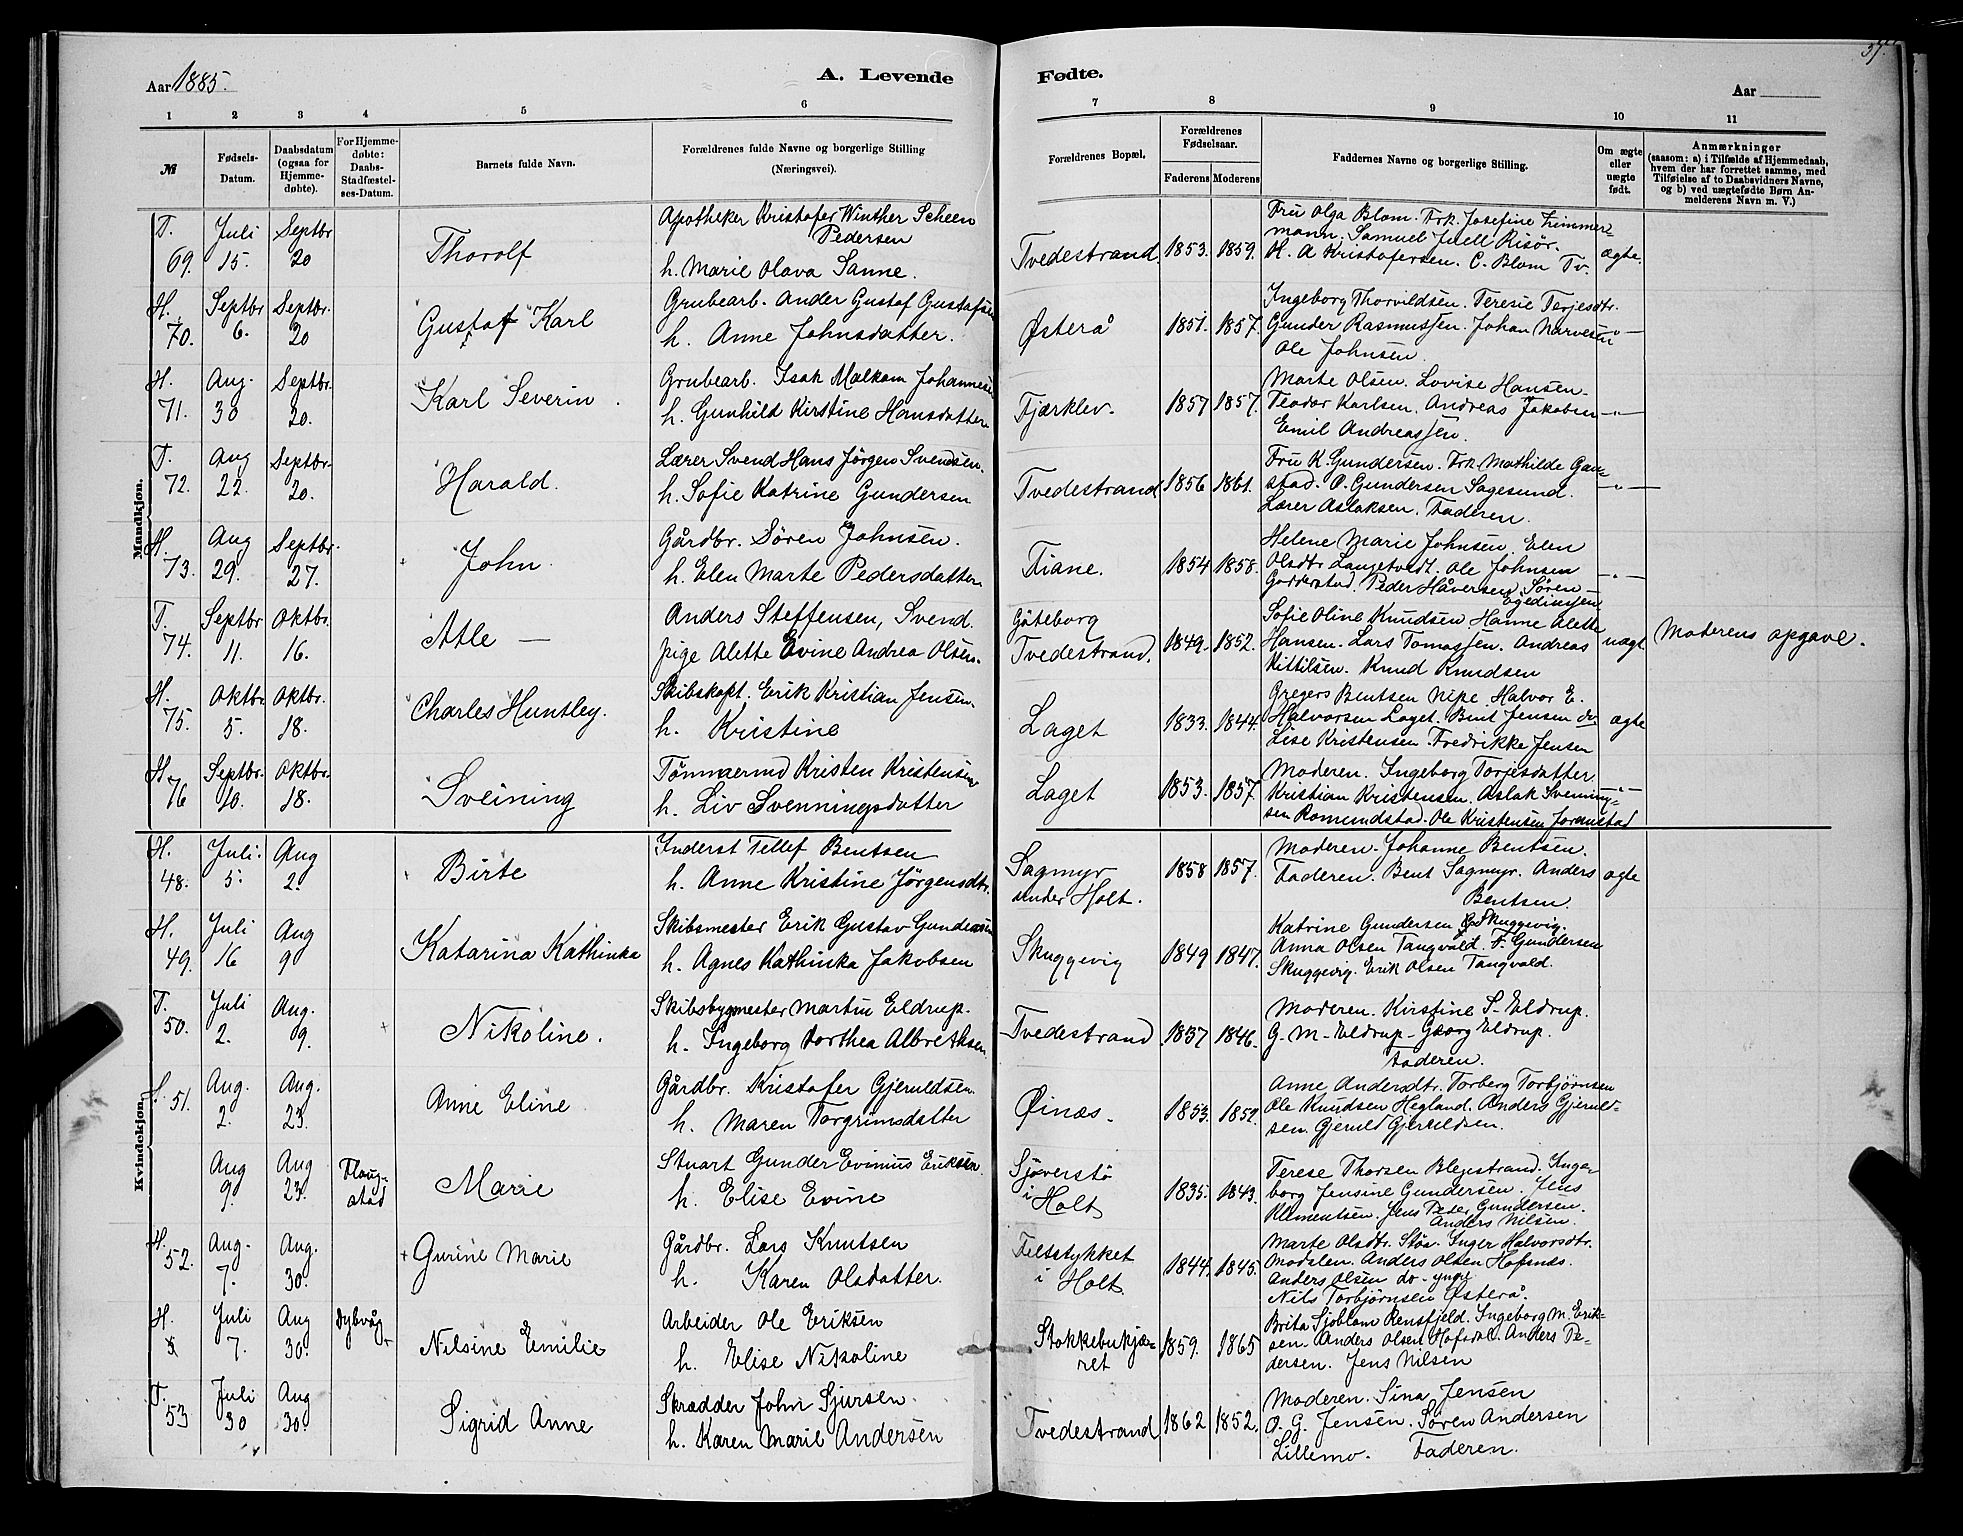 Aar 1885.
A. Levende
Fødte.
Aar
37.
1 2 3 4 5 6 7 8 9 10 11
№
Fødsels-
Datum.
Daabsdatum
(ogsaa for
Hjemme-
døbte).
For Hjemme-
døbte:
Daabs-
Stadfæstel-
ses-Datum.
Barnets fulde Navn.
Forældrenes fulde Navne og borgerlige Stilling
(Næringsvei).
Forældrenes Bopæl.
Forældrenes
Fødselsaar.
Faderens Moderens
Faddernes Navne og borgerlige Stilling.
Om ægte
eller
uægte
født.
Anmærkninger
(saasom: a) i Tilfælde af Hjemmedaab,
hvem der har forrettet samme, med
Tilføielse af to Daabsvidners Navne,
og b) ved uægtefødte Børn An-
melderens Navn m. V.)
Mandkjøn.
T. 69. Juli 15. Septbr 20
Thorolf
Apotheker Kristofer Winther Scheen
Pedersen
h. Marie Olava Sanne.
Tvedestrand. 1853. 1859.
Fru Olga Blom. Frk. Josefine Zimmer-
mann. Samuel Juell Risör.
H. A Kristofersen. C. Blom Tv.
ægte.
H. 70. Septbr 6. Septbr. 20
Gustaf Karl
Grubearb. Ander Gustaf Gustafsen
h. Anne Johnsdatter.
Østerå 1851. 1857.
Ingeborg Thorvildsen. Teresie Terjesdtr.
Gunder Rasmussen. Johan Narvesen
Ole Johnsen.
-"-
H. 71. Aug. 30 Septbr. 20.
Karl Severin.
Grubearb. Isak Malkom Johannesen
h. Gunhild Kirstine Hansdatter
Fjærklev. 1857 1857.
Marte Olsen. Lovise Hansen.
Teodor Karlsen. Andreas Jakobsen
Emil Andreassen.
-"-
T. 72. Aug 22. Septbr. 20.
Harald.
Lærer Svend Hans Jörgen Svendsen.
h. Sofie Katrine Gundersen
Tvedestrand 1856 1861.
Fru K. Gundersen. Frk. Mathilde Gau-
stad. O. Gundersen Sagesund.
Lærer Aslaksen. Faderen.
-"-
H. 73. Aug 29. Septbr. 27.
John.
Gårdbr. Sören Johnsen.
h. Elen Marte Pedersdatter
Fiane. 1854 1858.
Helene Marie Johnsen. Elen
Olsdtr Langetvedt. Ole Johnsen
Godderstad. Peder Håversen. Sören
-"-
T. 74. Septbr 11. Oktbr. 16.
Atle —
Anders Steffensen, Svend.
pige Alette Evine Andrea Olsen.
Göteborg
Tvedestrand. 1849. 1852.
Sofie Oline Knudsen Hanne Alette
Hansen. Lars Tomassen. Andreas
Kittilsen. Knud Knudsen
uægt
Moderens opgave.
H. 75. Oktbr 5. Oktbr. 18.
Charles Huntley.
Skibskapt. Erik Kristian Jensen.
h. Kristine
Laget 1833. 1844.
Gregers Bentsen Nipe. Halvor E.
Halvorsen Laget. Bent Jensen do
Lise Kristensen. Fredrikke Jensen
ægte
H. 76 Septbr. 10. Oktbr. 18.
Sveining
Tömmermd Kristen Kristensen
h. Liv Svenningsdatter
Laget 1853. 1857.
Moderen. Ingeborg Torjesdatter.
Kristian Kristensen. Aslak Svenning-
sen Romundstad. Ole Kristensen Joranstad
-"-
Kvindekjøn.
H. 48. Juli. 5. Aug 2.
Birte
Inderst Tellef Bentsen
h. Anne Kristine Jörgensdtr.
Sagmyr
under Holt. 1858 1857.
Moderen. Johanne Bentsen.
Faderen. Bent Sagmyr. Anders
Bentsen.
ægte
H. 49. Juli 16 Aug 9.
Katarina Kathinka
Skibsmester Erik Gustav Gundersen
h. Agnes Kathinka Jakobsen
Skuggevig 1849 1847.
Katrine Gundersen Skuggevig.
Anna Olsen Tangvald. F. Gundersen
Skuggevig. Erik Olsen Tangvald.
T. 50. Juli 2. Aug. 9.
Nikoline.
Skibsbygmester Martin Eldrup.
h. Ingeborg Dorthea Albrethsen
Tvedestrand 1837 1846.
Moderen. Kirstine S. Eldrup.
G. M. Eldrup. Georg Eldrup.
Faderen.
H. 51. Aug. 2. Aug. 23.
Anne Eline
Gårdbr. Kristofer Gjeruldsen.
h. Maren Torgrimsdatter
Øinæs. 1853. 1852.
Anne Andersdtr. Torberg Torbjørnsen
Ole Knudsen Hegland. Anders Gjeruld-
sen. Gjeruld Gjeruldsen.
Aug 9. Aug 23. Flaug-
stad
Marie
Stuart Gunder Evinius Eriksen.
h. Elise Evine
Sjöverstö
i
Holt 1835. 1843.
Terese Thorsen Blegestrand. Inge-
borg Jensine Gundersen. Jens
Klementsen. Jens Peder Gundersen.
Anders Nilsen.
H. 52. Aug. 7. Aug. 30.
Gurine Marie
Gårdbr. Lars Knutsen
h. Karen Olsdatter.
Feltstykket
i Holt 1844. 1845.
Marte Olsdtr. Stöa. Inger Halvorsdtr.
Modalen. Anders Olsen Hofsnæs.
Anders Olsen do. yngre
Nils Torbjørnsen Østerå.
H. Juli 7. Aug 30. Dybvåg
Nilsine Emilie
Arbeider Ole Eriksen
h. Elise Nikoline
Stokkebukjær-
ret 1859. 1865
Brita Sjöblom Rensfjeld. Ingeborg M. Erik-
sen. Anders Olsen Hofsdal. Anders Pe-
dersen. Jens Nilsen
T. 53 Juli 30 Aug 30.
Sigrid Anne
Skrædder John Sjursen.
h. Karen Marie Andersen
Tvedestrand 1862 1852.
Moderen. Sina Jensen
O. G. Jensen. Sören Andersen
Lillemo. Faderen.